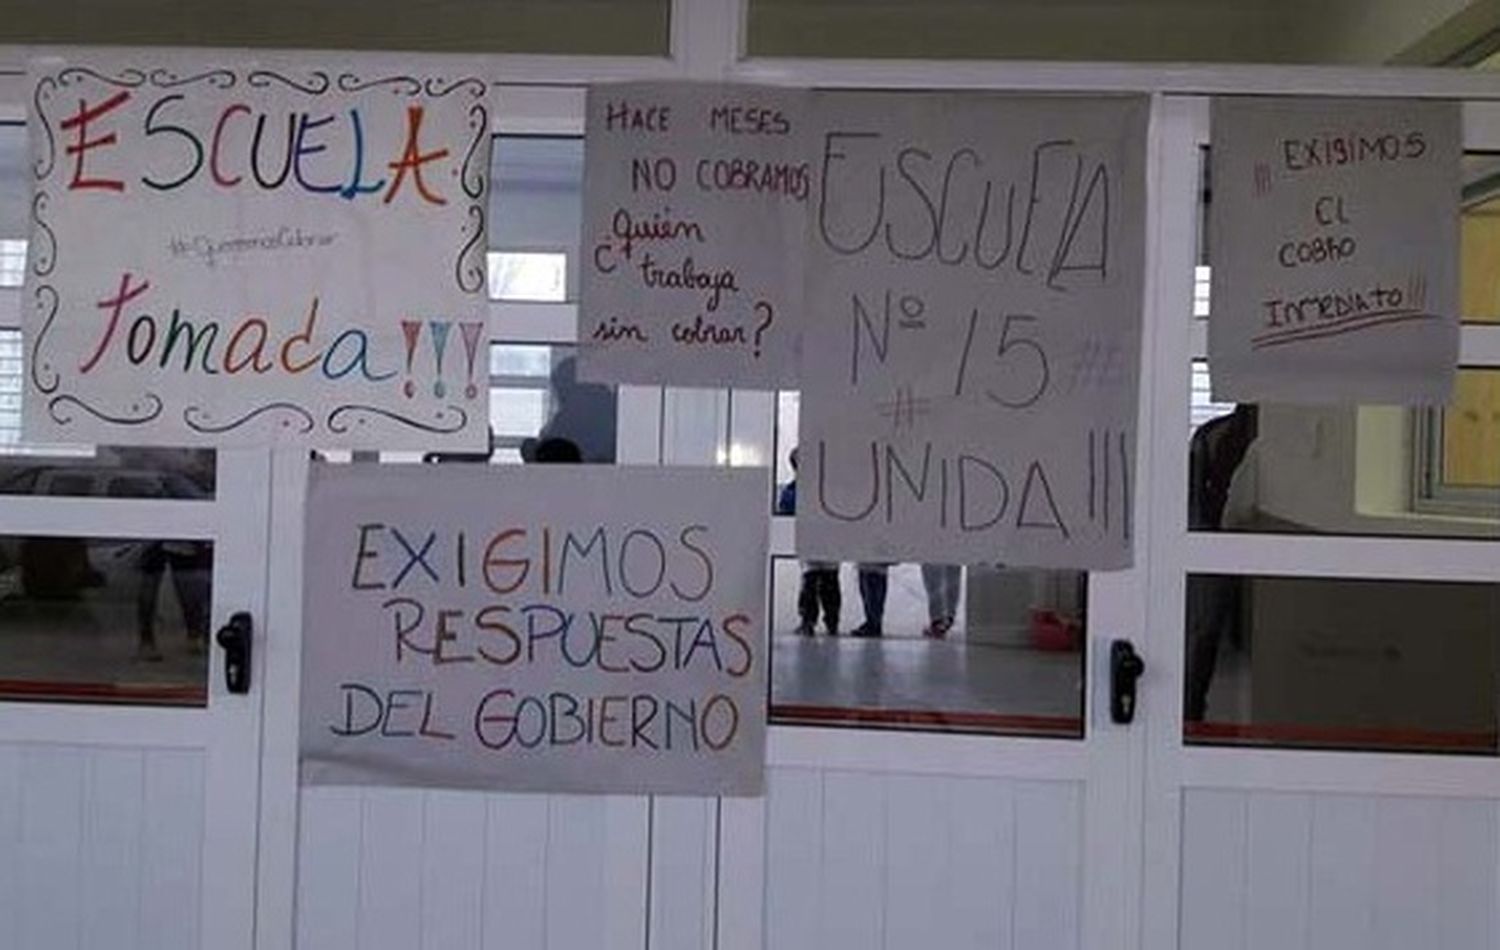 ESCUELA
#QueremosCobrar
Tomada!!!
HACE MESES
NO COBRAMOS
¿Quién
trabaja
sin cobrar?
ESCUELA
Nº 15
#
UNIDA!!!
!!! EXIGIMOS
EL
COBRO
INMEDIATO!!!
EXIGIMOS
RESPUESTAS
DEL GOBIERNO